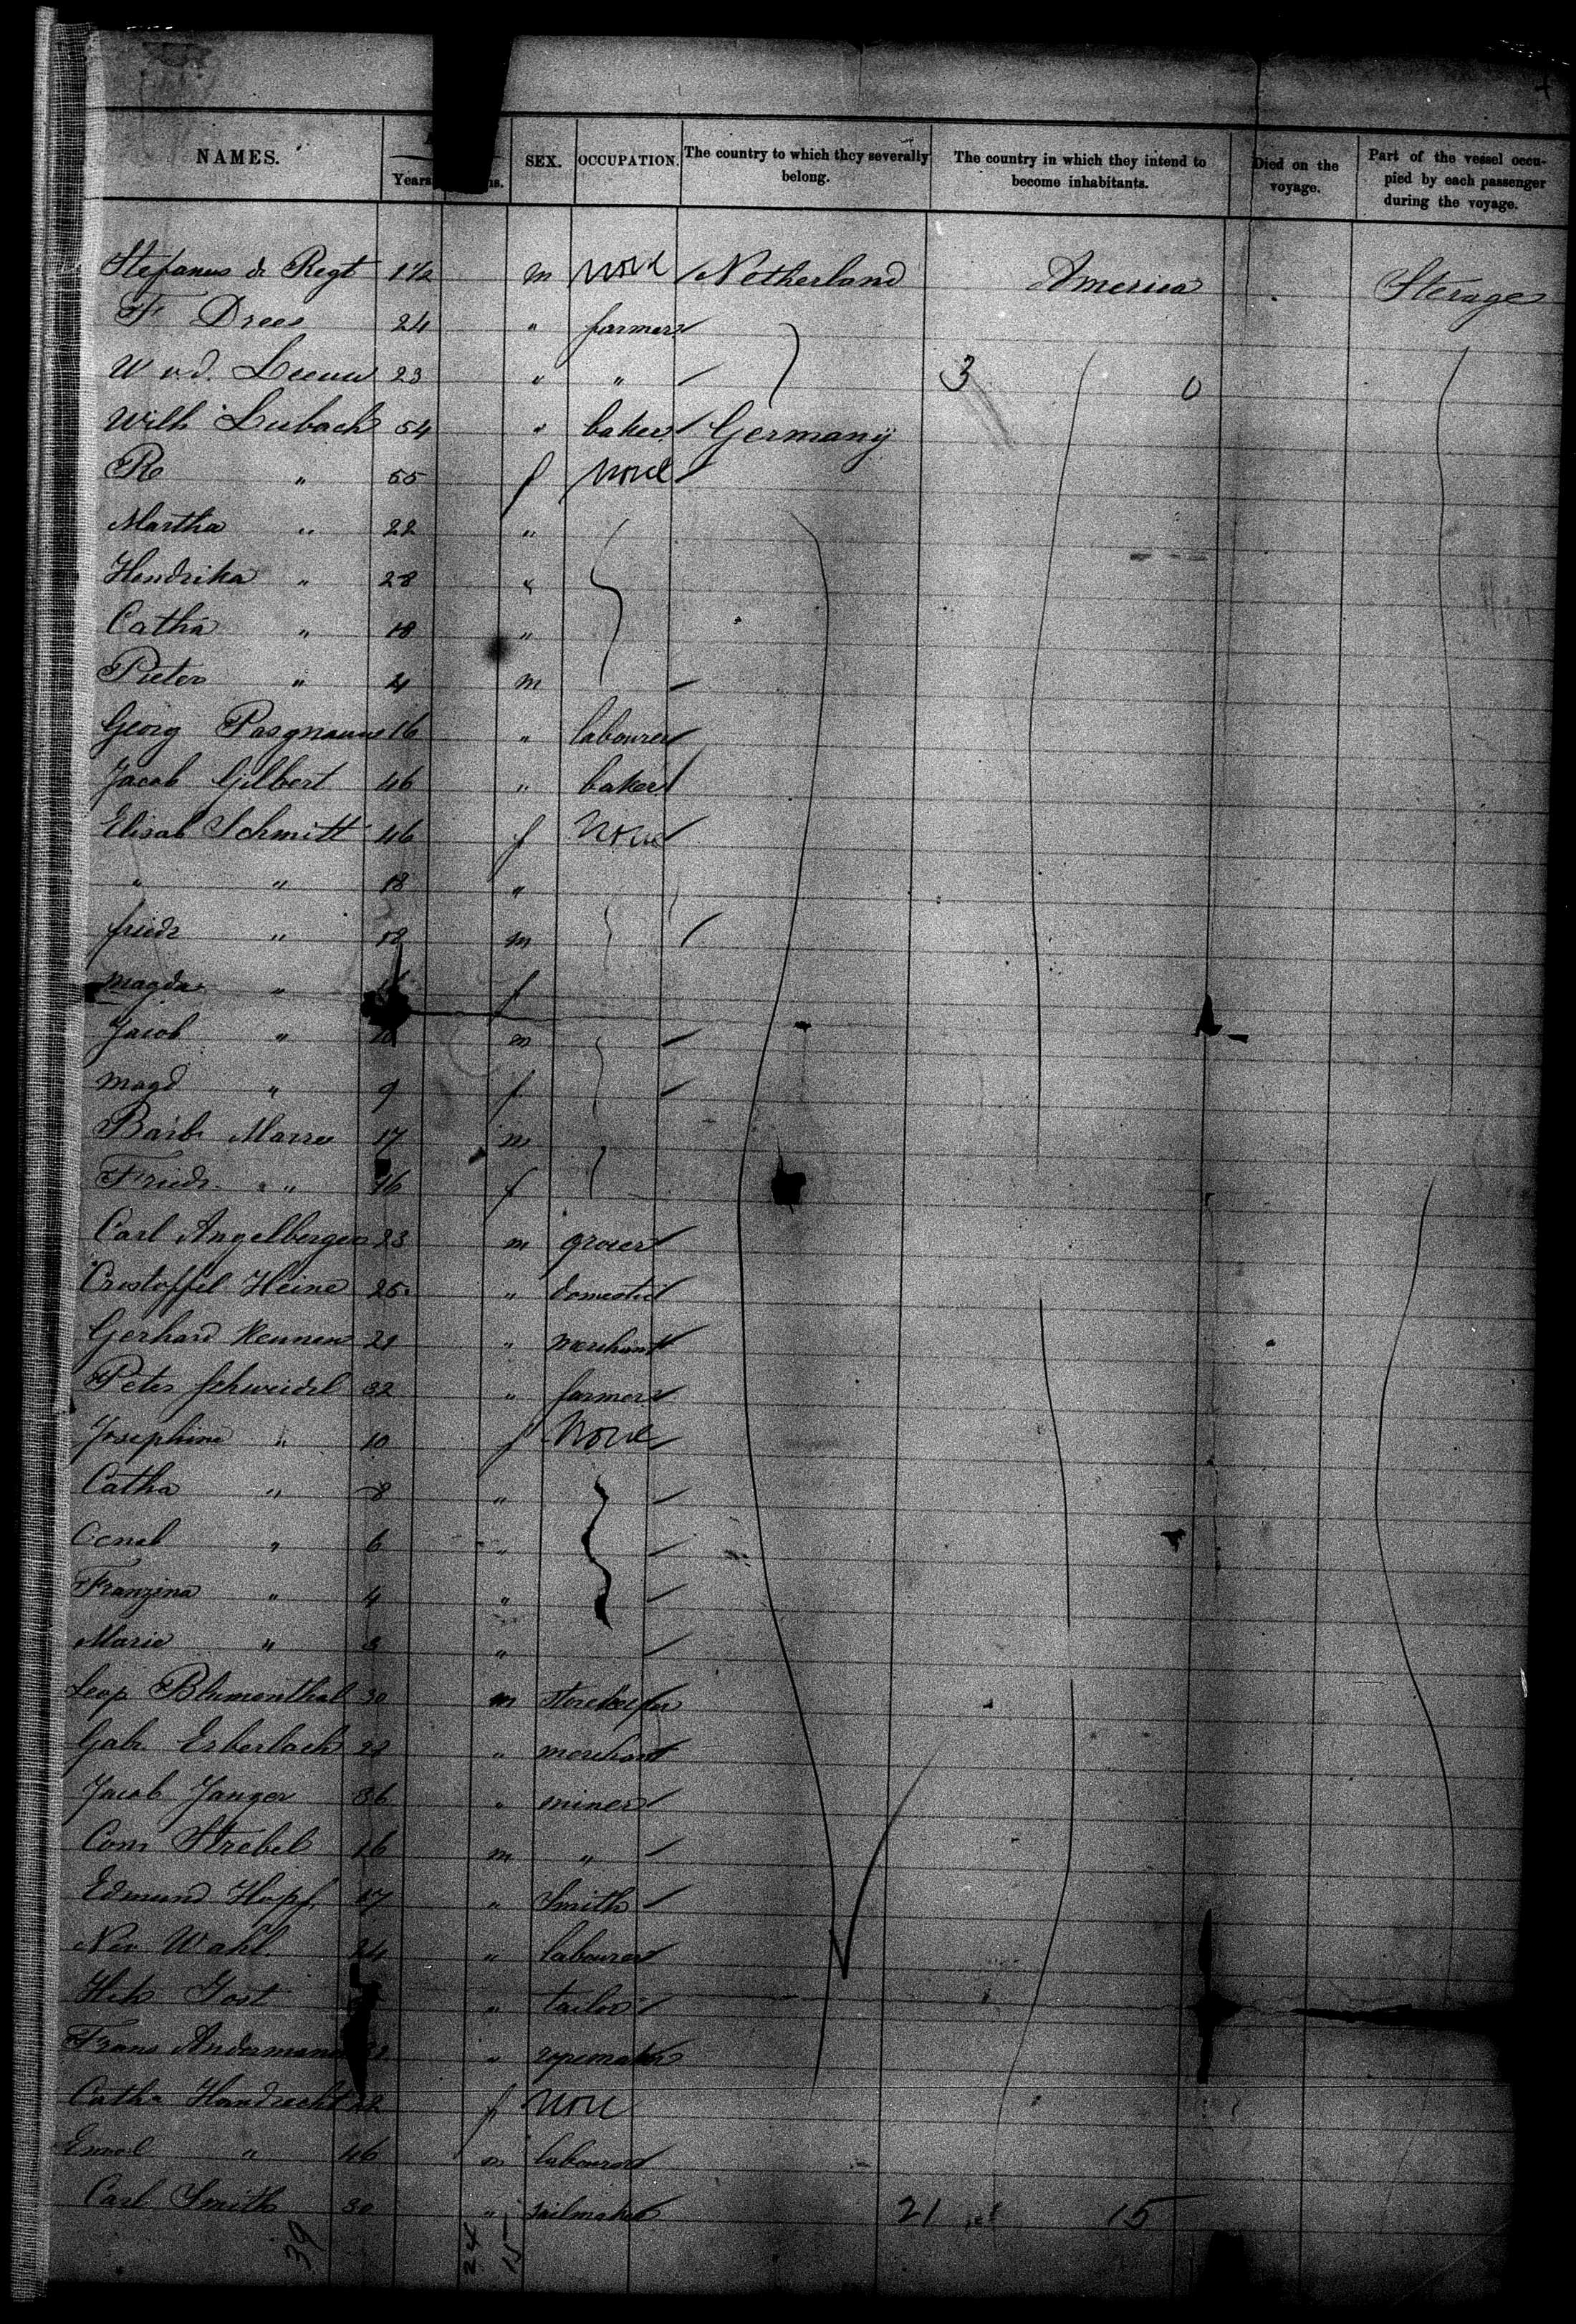 NAMES. Years ns. SEX. OCCUPATION. The country to which they severally belong. The country in which they intend to become inhabitants. Died on the voyage. Part of the vessel occupied by each passenger during the voyage.
Stefanus de Regt 1½ m None Netherland America Sterage
F Drees 24 " farmer
W v.d. Leeuw 23 " " 3 0
Wilh Lusbach 54 " baker Germany
R " 55 f None
Martha " 22 "
Hendrika " 28 "
Catha " 18 "
Pieter " 4 m
Georg 16 " labourer
Jacob Gilbert 46 " baker
Elisab Schmitt 46 f None
" " 18 "
friedr " m
Magda " f
Jacob " 10 m
Magd " 9 f
Barb 17 m
Friedr " 16 f
Carl Angelberger 23 m grocer
Crostoffel Heine 25 " domestic
Gerhard Kennen 21 " merchant
Peter Schweidel 32 " farmer
Josephine " 10 f None
Catha " 8 "
" 6 "
Franzina " 4 "
Marie " 3 "
Leop Blumenthal 30 m storekeeper
Gab. Erberlach " merchant
Jacob Janger 36 " miner
Strebel 26 m "
Edmund Hopf 17 " Smith
Wahl 24 " labourer
Jost " tailor
Frans Andermann " ropemaker
Catha Handrecht 22 f None
" 46 m labourer
Carl Smith 30 " sailmaker 21 15
39 24 15